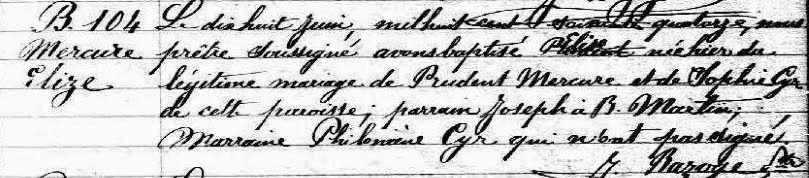 B. 104 Le dix huit Juin, mil huit cent soixante quatorze, nous
Mercure prêtre soussigné avons baptisé Elise née hier du
Elize légitime mariage de Prudent Mercure et de Sophie Cyr
de cette paroisse; parrain Joseph à B. Martin;
Marraine Philomène Cyr qui n'ont pas signé